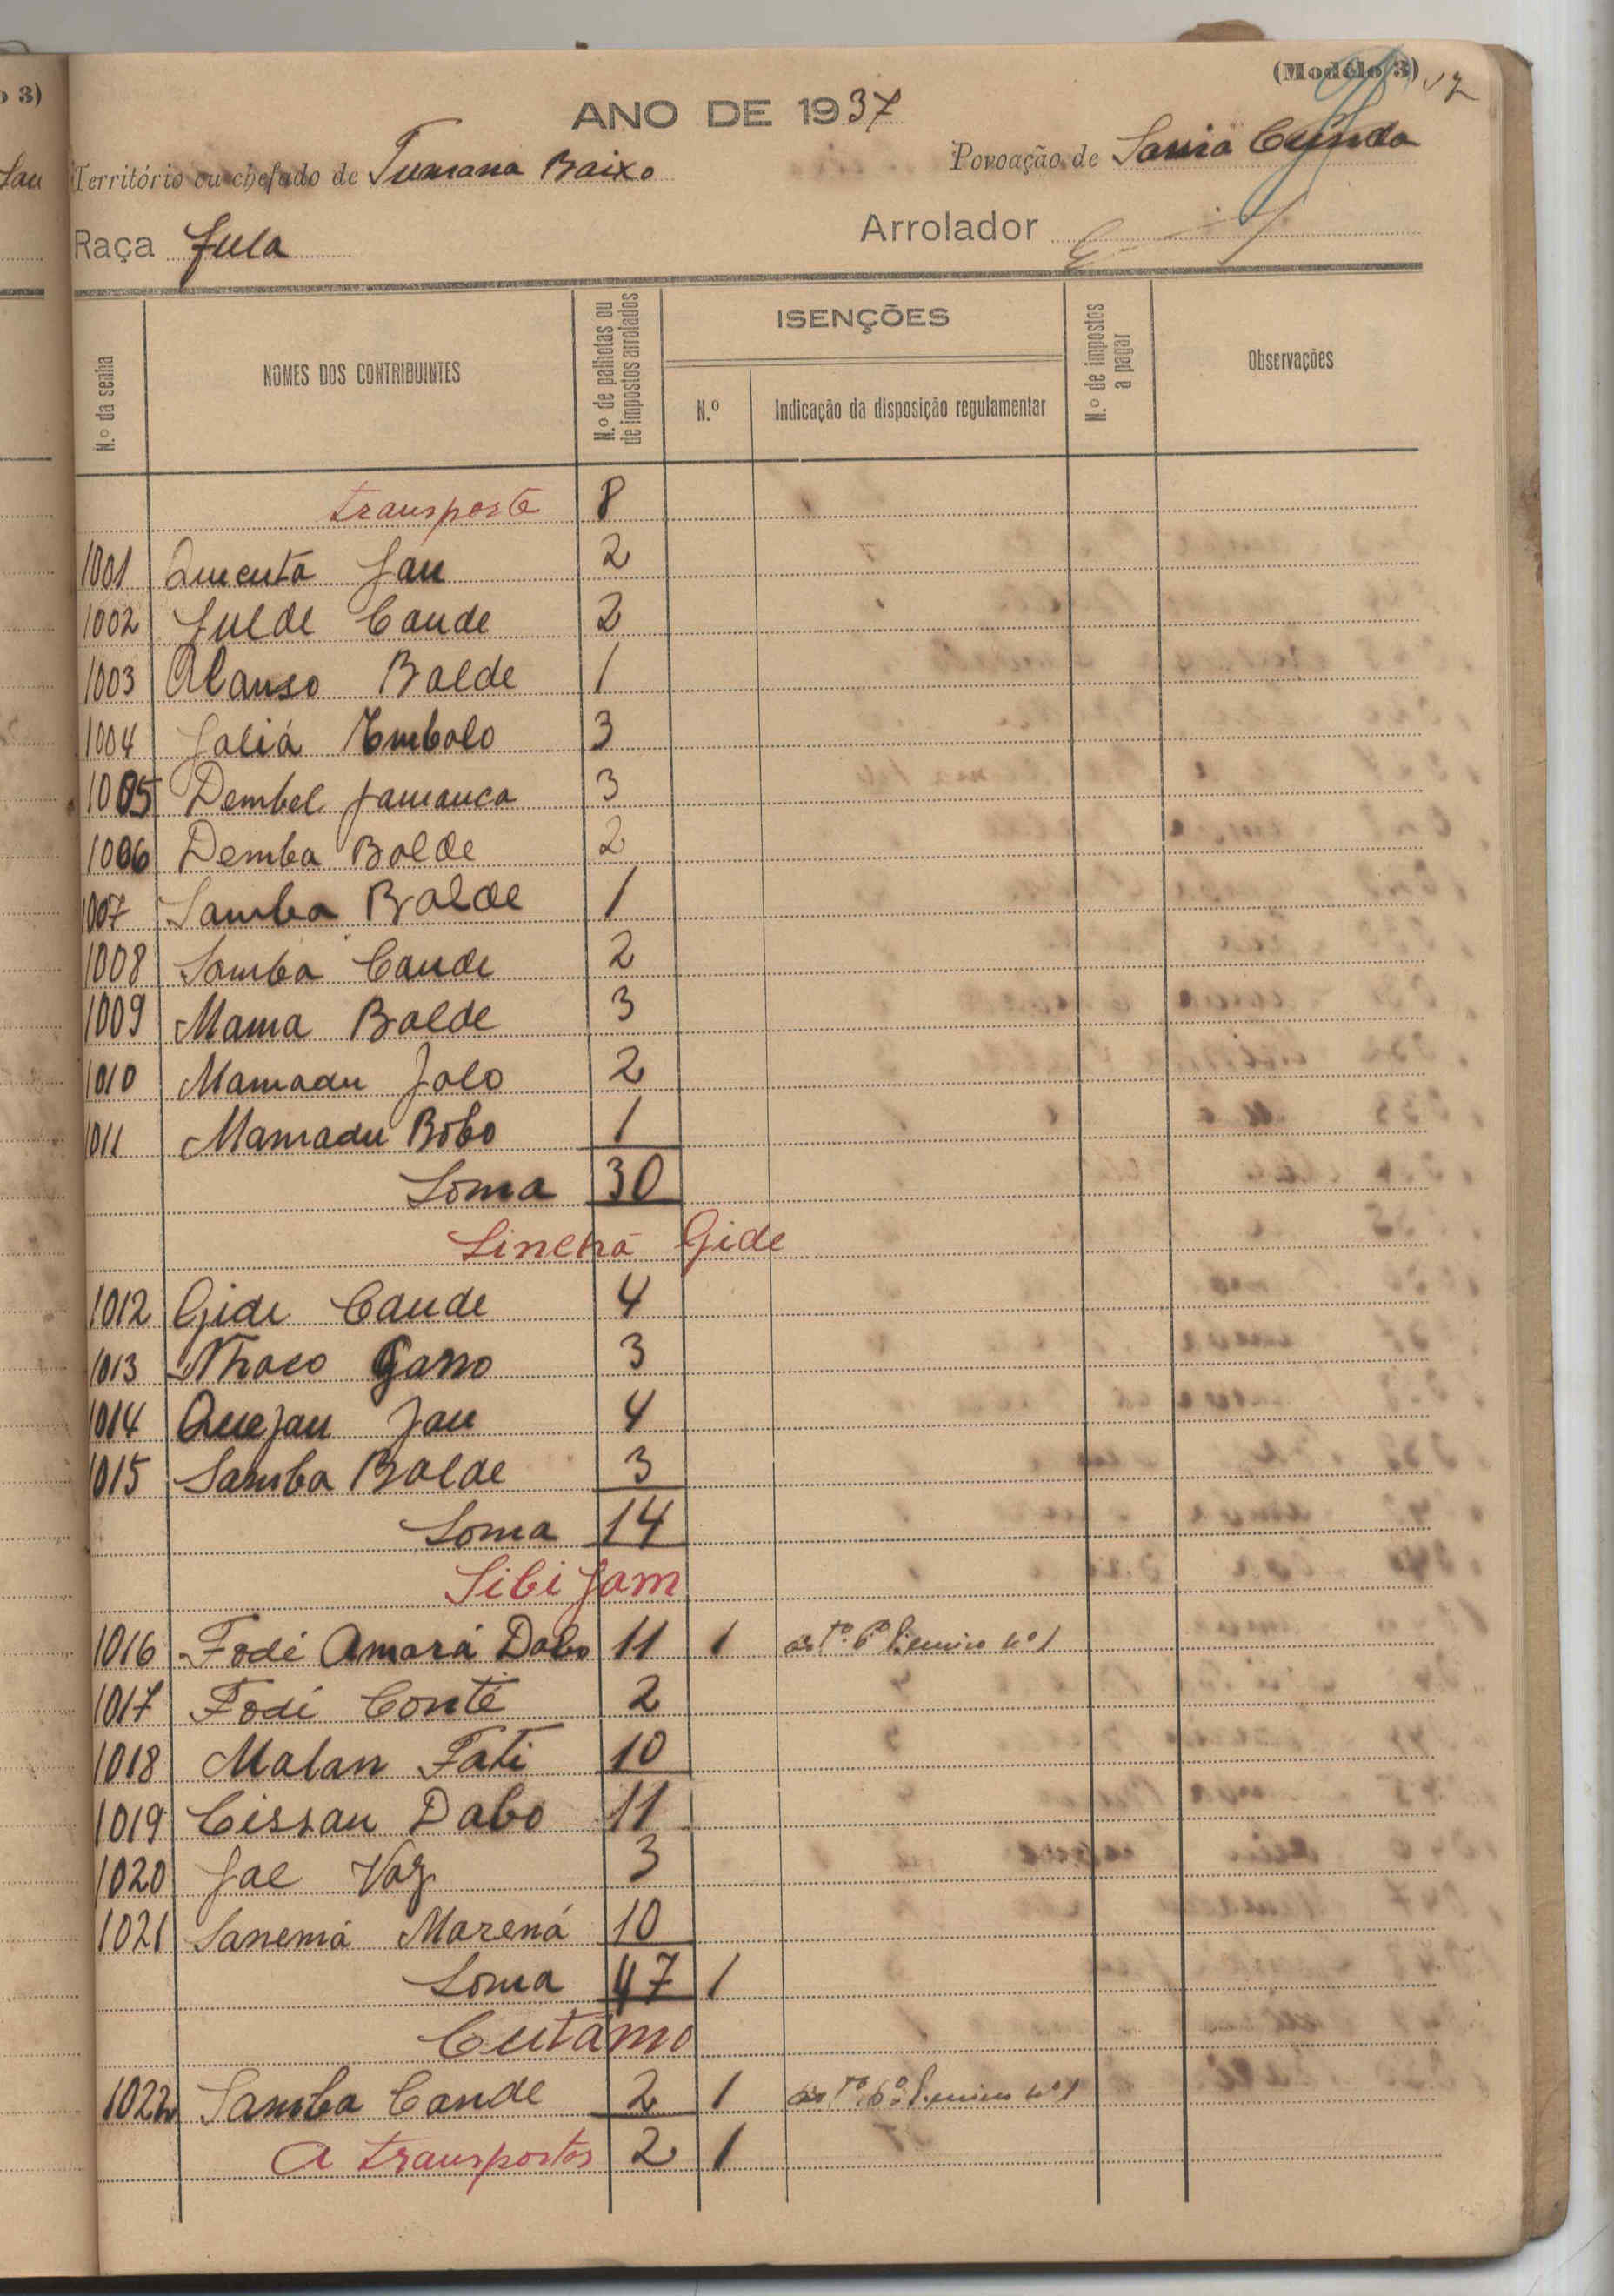 (Modêlo 3) 17
o 3)
ANO DE 1937
Território ou chefado de Tumana Baixo
Povoação de Sania Cunda
Raça fula
Arrolador
N.º da senha
NOMES DOS CONTRIBUINTES
N.º de palhotas ou de impostos arrolados
ISENÇÕES
N.º
Indicação da disposição regulamentar
N.º de impostos a pagar
Observações
transporte 8
1001 Quecuta Jau 2
1002 Julde Cande 2
1003 Alanso Balde 1
1004 Jaliá Embalo 3
1005 Dembel Jamanca 3
1006 Demba Balde 2
1007 Samba Balde 1
1008 Samba Cande 2
1009 Mama Balde 3
1010 Mamadu Jalo 2
1011 Mamadu Bobo 1
Soma 30
Sinchã Gide
1012 Gide Cande 4
1013 Nhaco Gano 3
1014 Quejau Jau 4
1015 Samba Balde 3
Soma 14
Sibi Jam
1016 Fodé Amará Dabo 11 1 nº 1
1017 Fodé Conté 2
1018 Malan Fati 10
1019 Cissau Dabo 11
1020 Jae Vaz 3
1021 Sanemá Marená 10
Soma 47 1
Cutamo
1022 Samba Cande 2 1 nº 1
A transportar 2 1